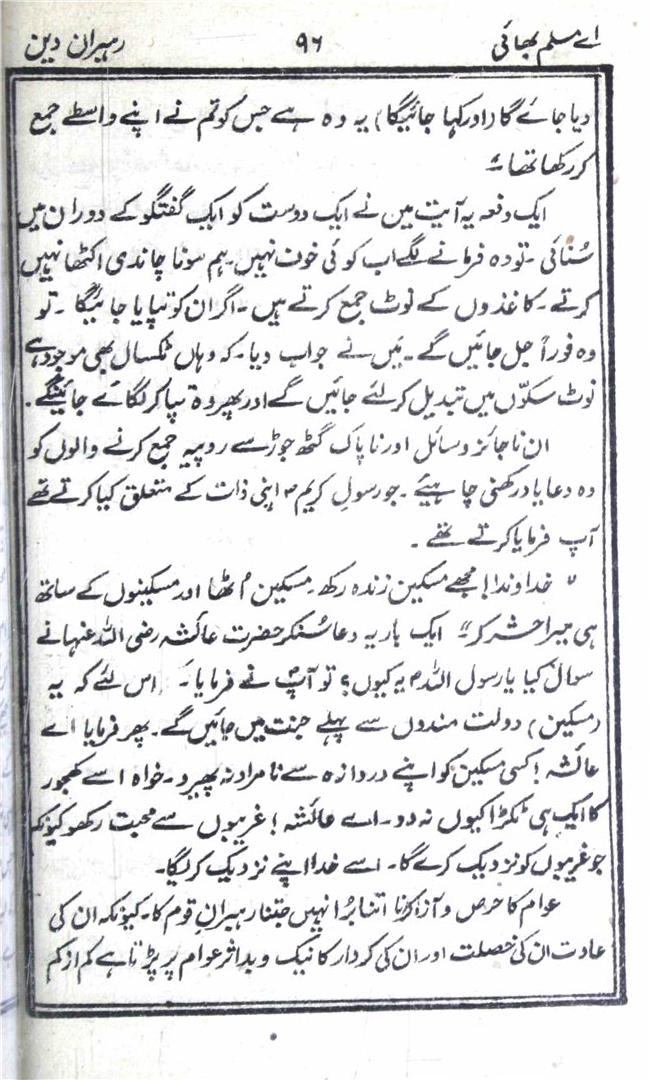 اے مسلم بھائی ۹۶ رہبران دین
دیا جائے گا (اور کہا جائیگا) یہ وہ ہے جس کو تم نے اپنے واسطے جمع
کر رکھا تھا ؂
ایک دفعہ یہ آیت میں نے ایک دوست کو ایک گفتگو کے دوران میں
سُنائی ۔ تو وہ فرمانے لگے اب کوئی خوف نہیں ۔ ہم سونا چاندی اکٹھا نہیں
کرتے ۔ کاغذوں کے نوٹ جمع کرتے ہیں ۔ اگر ان کو تپایا جائیگا ۔ تو
وہ فوراً جل جائیں گے ۔ میں نے جواب دیا ۔ کہ وہاں ٹکسال بھی موجود ہے
نوٹ سکوّں میں تبدیل کر لئے جائیں گے اور پھر وہ تپا کر لگائے جائینگے ۔
ان ناجائز وسائل اور ناپاک گٹھ جوڑ سے روپیہ جمع کرنے والوں کو
وہ دعا یاد رکھنی چاہیئے ۔ جو رسول کریم ؐ اپنی ذات کے متعلق کیا کرتے تھے
آپ فرمایا کرتے تھے ۔
" خداوندا! مجھے مسکین زندہ رکھ ۔ مسکین اُٹھا اور مسکینوں کے ساتھ
ہی میرا حشر کر " ایک بار یہ دعا سُنکر حضرت عائشہ رضی اللہ عنہا نے
سوال کیا یا رسول اللہ ؐ یہ کیوں ؟ تو آپؐ نے فرمایا ۔ اس لئے کہ یہ
(مسکین) دولت مندوں سے پہلے جنت میں جائیں گے ۔ پھر فرمایا اے
عائشہ ! کسی مسکین کو اپنے دروازہ سے نامراد نہ پھیرو ۔ خواہ اسے کھجور
کا ایک ہی ٹکڑا کیوں نہ دو ۔ اے عائشہ ! غریبوں سے محبت رکھو کیونکہ
جو غریبوں کو نزدیک کرے گا ۔ اسے خدا اپنے نزدیک کر لیگا ۔
عوام کا حرص و آز کرنا اتنا بُرا نہیں جتنا رہبرانِ قوم کا ۔ کیونکہ ان کی
عادت ان کی خصلت اور ان کی کردار کا نیک و بد اثر عوام پر پڑتا ہے کم از کم